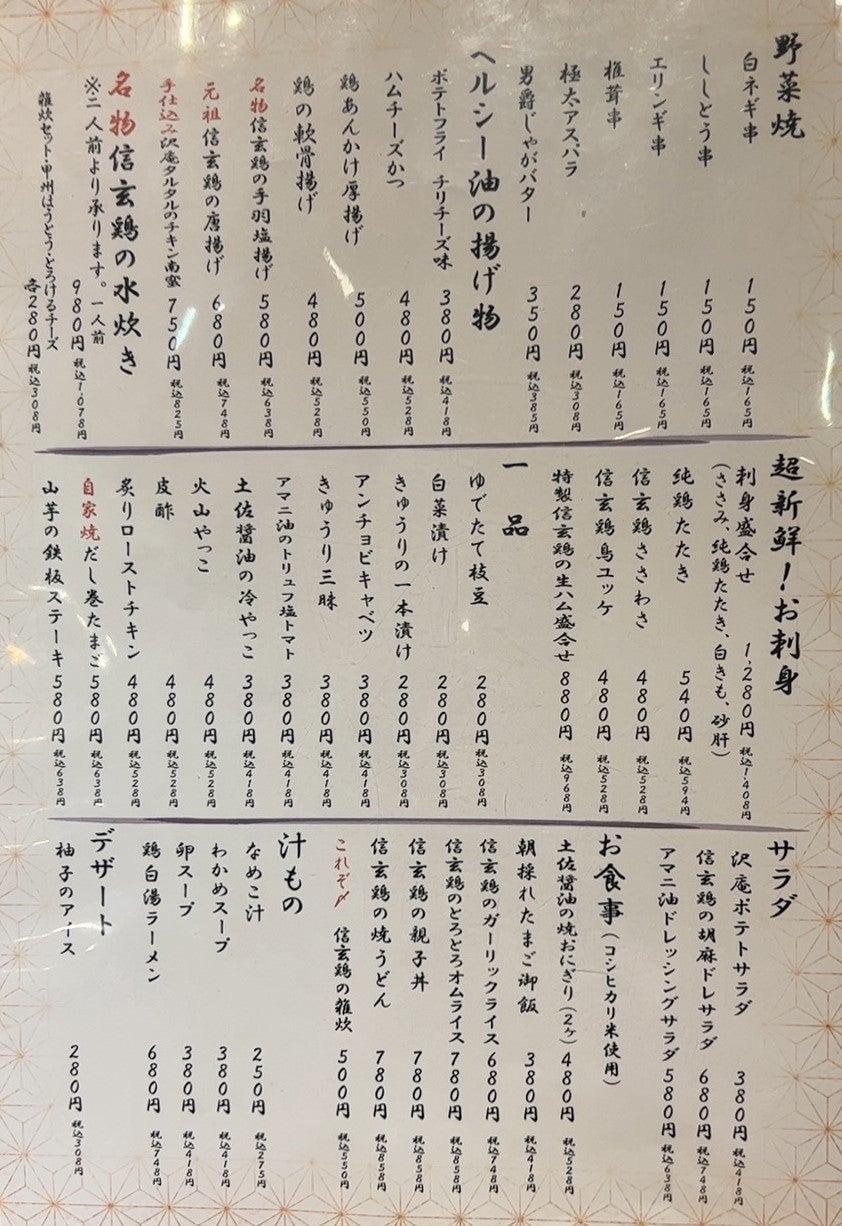 野菜焼
白ネギ串 150円 税込165円
ししとう串 150円 税込165円
エリンギ串 150円 税込165円
椎茸串 150円 税込165円
極太アスパラ 280円 税込308円
男爵じゃがバター 350円 税込385円
ヘルシー油の揚げ物
ポテトフライ チリチーズ味 380円 税込418円
ハムチーズかつ 480円 税込528円
鶏あんかけ厚揚げ 500円 税込550円
鶏の軟骨揚げ 480円 税込528円
名物信玄鶏の手羽塩揚げ 580円 税込638円
元祖信玄鶏の唐揚げ 680円 税込748円
手仕込み沢庵タルタルのチキン南蛮 750円 税込825円
名物信玄鶏の水炊き
※二人前より承ります。一人前
980円 税込1,078円
雑炊セット・甲州ほうとう・とろけるチーズ
各280円 税込308円
超新鮮！お刺身
刺身盛合せ 1,280円 税込1,408円
（ささみ、純鶏たたき、白きも、砂肝）
純鶏たたき 540円 税込594円
信玄鶏ささわさ 480円 税込528円
信玄鶏鳥ユッケ 480円 税込528円
特製信玄鶏の生ハム盛合せ 880円 税込968円
一品
ゆでたて枝豆 280円 税込308円
白菜漬け 280円 税込308円
きゅうりの一本漬け 280円 税込308円
アンチョビキャベツ 380円 税込418円
きゅうり三昧 380円 税込418円
アマニ油のトリュフ塩トマト 380円 税込418円
土佐醤油の冷やっこ 380円 税込418円
火山やっこ 480円 税込528円
皮酢 480円 税込528円
炙りローストチキン 480円 税込528円
自家焼だし巻たまご 580円 税込638円
山芋の鉄板ステーキ 580円 税込638円
サラダ
沢庵ポテトサラダ 380円 税込418円
信玄鶏の胡麻ドレサラダ 680円 税込748円
アマニ油ドレッシングサラダ 580円 税込638円
お食事（コシヒカリ米使用）
土佐醤油の焼おにぎり（2ヶ） 480円 税込528円
朝採れたまご御飯 380円 税込418円
信玄鶏のガーリックライス 680円 税込748円
信玄鶏のとろとろオムライス 780円 税込858円
信玄鶏の親子丼 780円 税込858円
信玄鶏の焼うどん 780円 税込858円
これぞ〆 信玄鶏の雑炊 500円 税込550円
汁もの
なめこ汁 250円 税込275円
わかめスープ 380円 税込418円
卵スープ 380円 税込418円
鶏白湯ラーメン 680円 税込748円
デザート
柚子のアイス 280円 税込308円